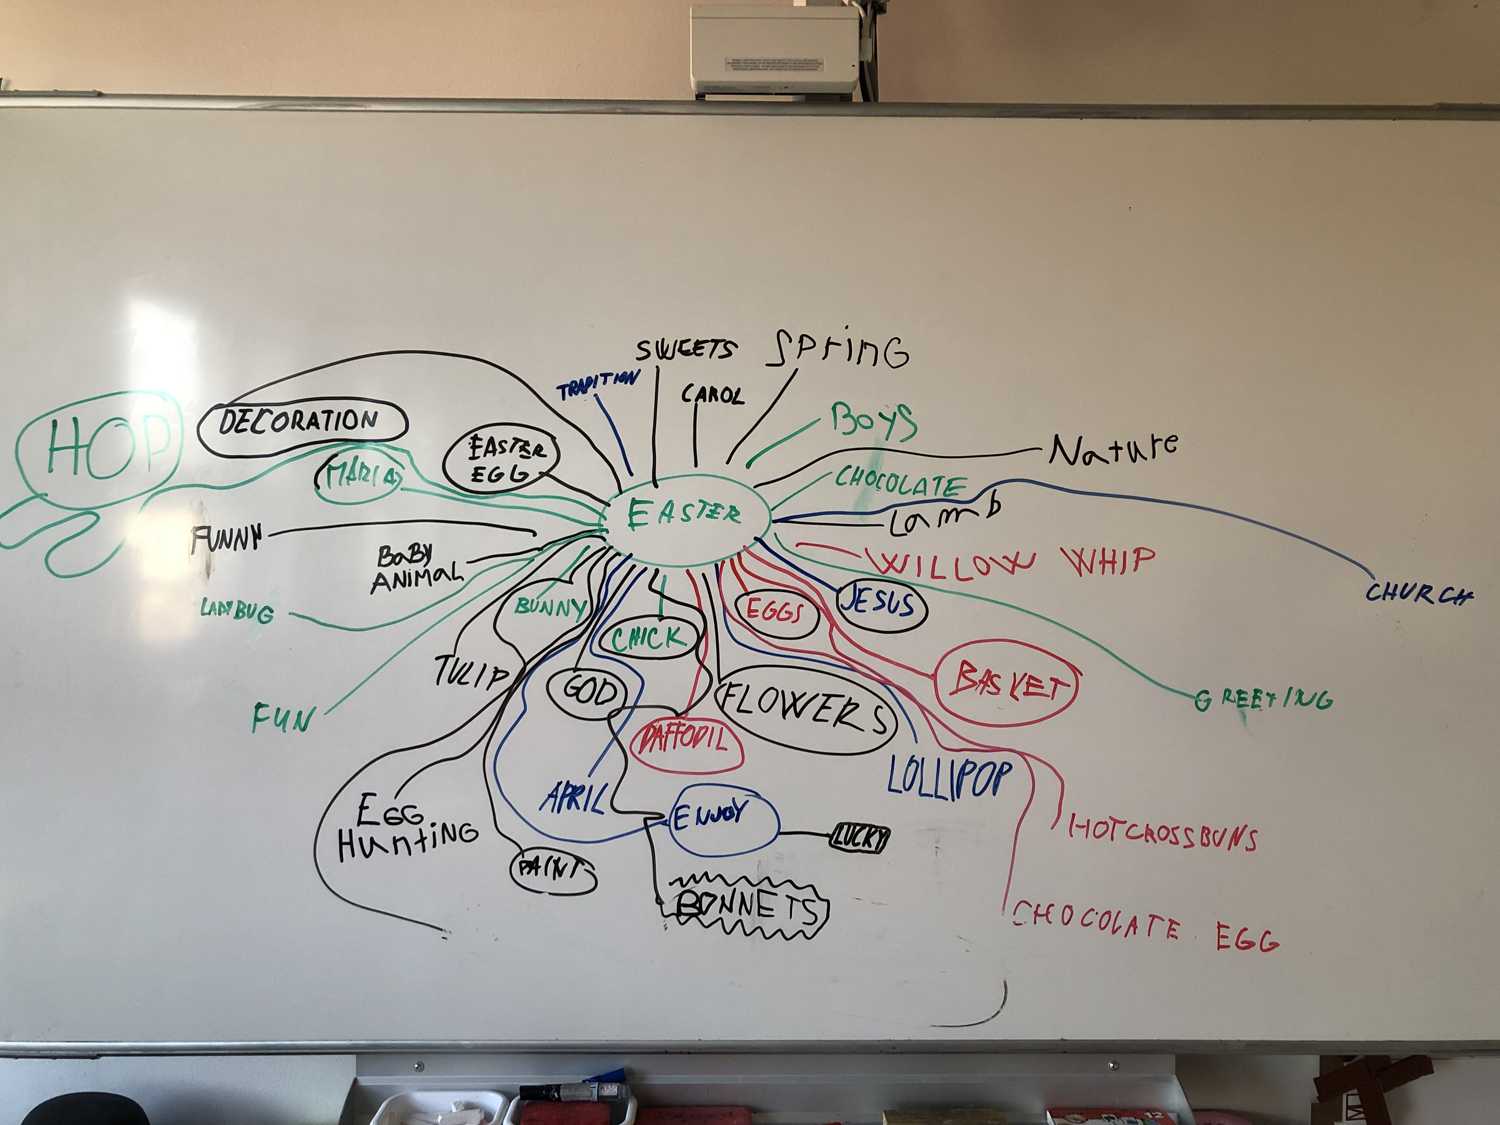 SWEETS
SPrinG
TRADITION
CAROL
BOYS
HOP
DECORATION
EASTER
EGG
Nature
MARIA
CHOCOLATE
EASTER
Lamb
FUNNY
BaBY
ANIMAL
WILLOW WHIP
CHURCH
LADYBUG
BUNNY
EGGS
JESUS
CHICK
TULIP
GOD
FLOWERS
BASKET
GREETING
FUN
DAFFODIL
APRIL
LOLLIPOP
EGG
HuntiNG
ENJOY
LUCKY
HOTCROSSBUNS
PAINT
BONNETS
CHOCOLATE EGG
12